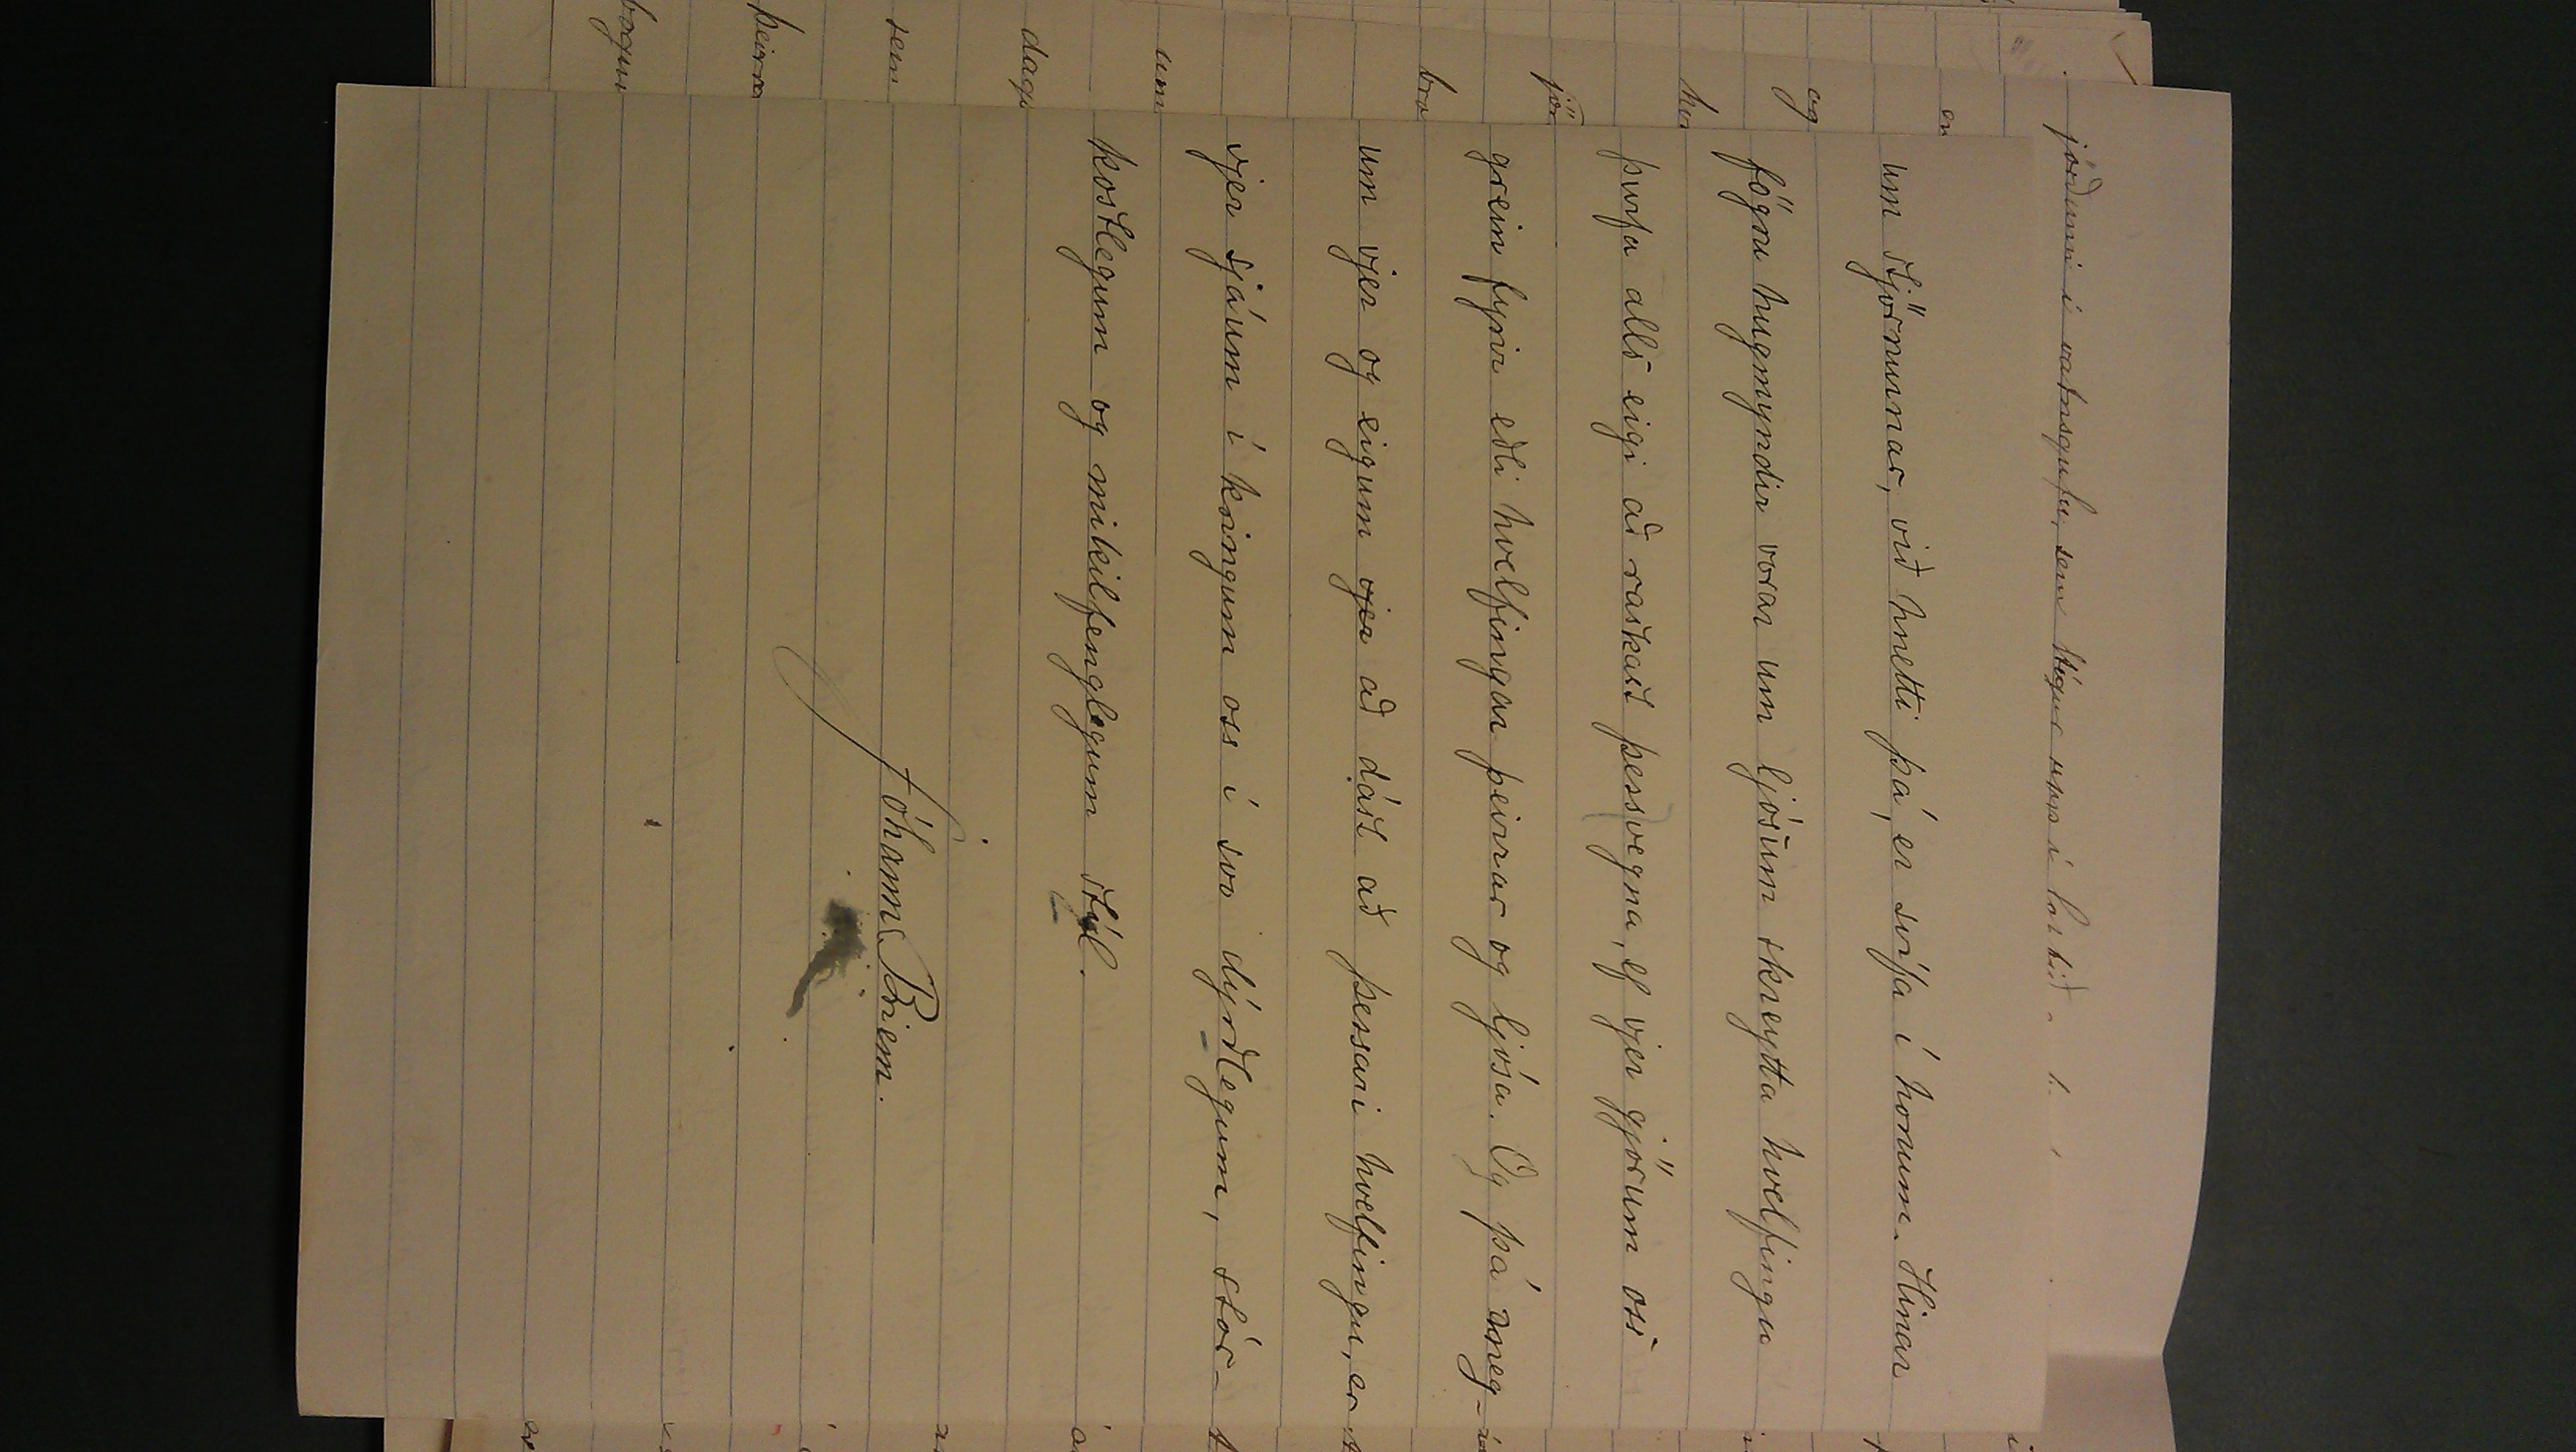 jörðunni í vatnsgufu, sem stígur upp í loptið
um stjörnunar, við hnetti þá, er svífa í honum. Hinar
fögru hugmyndir vorar um ljósum skreytta hvelfingu
þurfa alls eigi að raskast þess vegna, ef vjer gjörum oss
grein fyrir eðli hvelfingar þeirrar og ljósa. Og þá meg-
um vjer og eigum vjer að dást að þessari hvelfingu, er
vjer sjáum í kringum oss í svo dýrðlegum, stór-
kostlegum og mikilfenglegum stýl.
Jóhann Briem.
en
og
jör
bra
um
dag
sem
þeirra